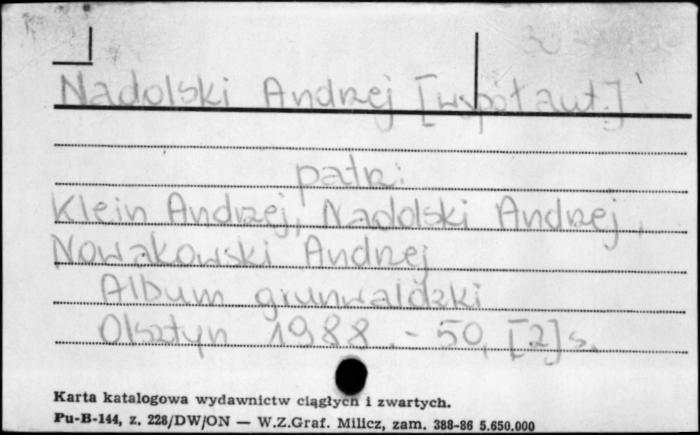 Nadolski Andrzej [współaut.]
patrz:
Klein Andrzej, Nadolski Andrzej,
Nowakowski Andrzej
Album grunwaldzki
Olsztyn 1988. - 50, [2] s.
Karta katalogowa wydawnictw ciągłych i zwartych.
Pu-B-144, z. 228/DW/ON — W.Z.Graf. Milicz, zam. 388-86 5.650.000